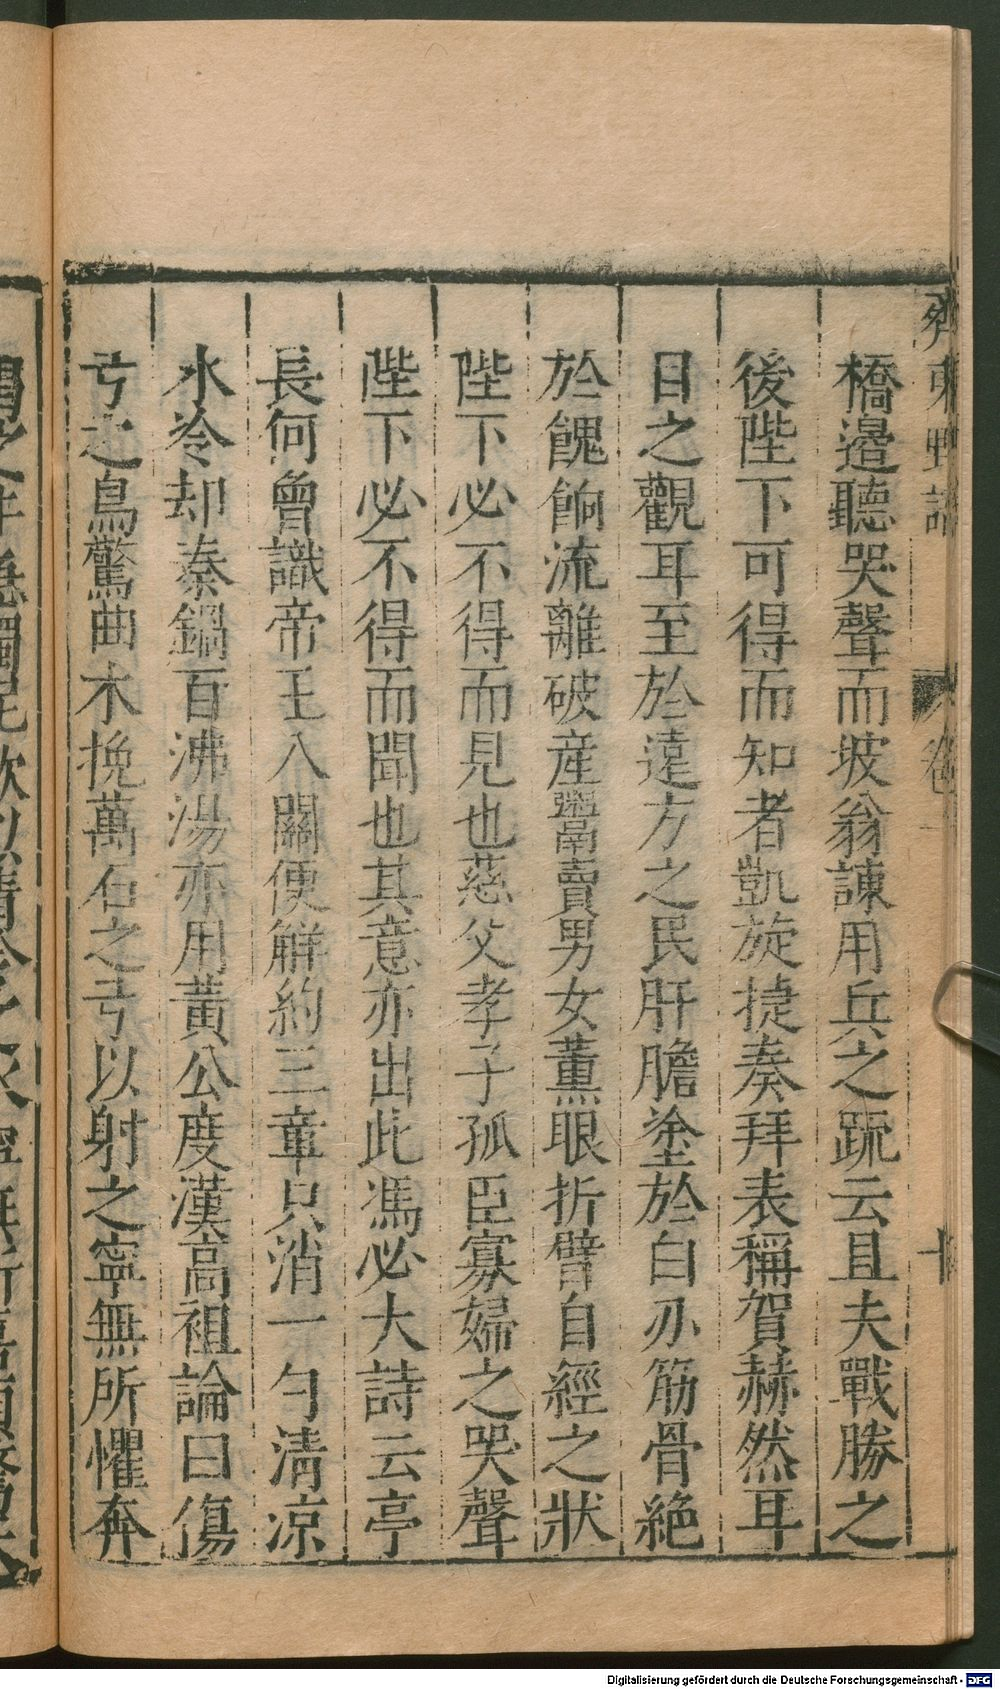 齊東野語
卷一
十
橋邉聽哭聲而坡翁諫用兵之䟽云且夫戰勝之
後陛下可得而知者凱旋捷奏拜表稱賀赫然耳
目之觀耳至於遠方之民肝膽塗於白刃筋骨絶
於餽餉流離破産鬻賣男女薰眼折臂自經之狀
陛下必不得而見也慈父孝子孤臣寡婦之哭聲
陛下必不得而聞也其意亦出此馮必大詩云亭
長何曾識帝王入關便解約三章只消一勺清凉
水冷却秦鍋百沸湯亦用黃公度漢高祖論曰傷
弓之鳥驚曲木挽萬石之弓以射之寧無所懼奔
Digitalisierung gefördert durch die Deutsche Forschungsgemeinschaft - DFG